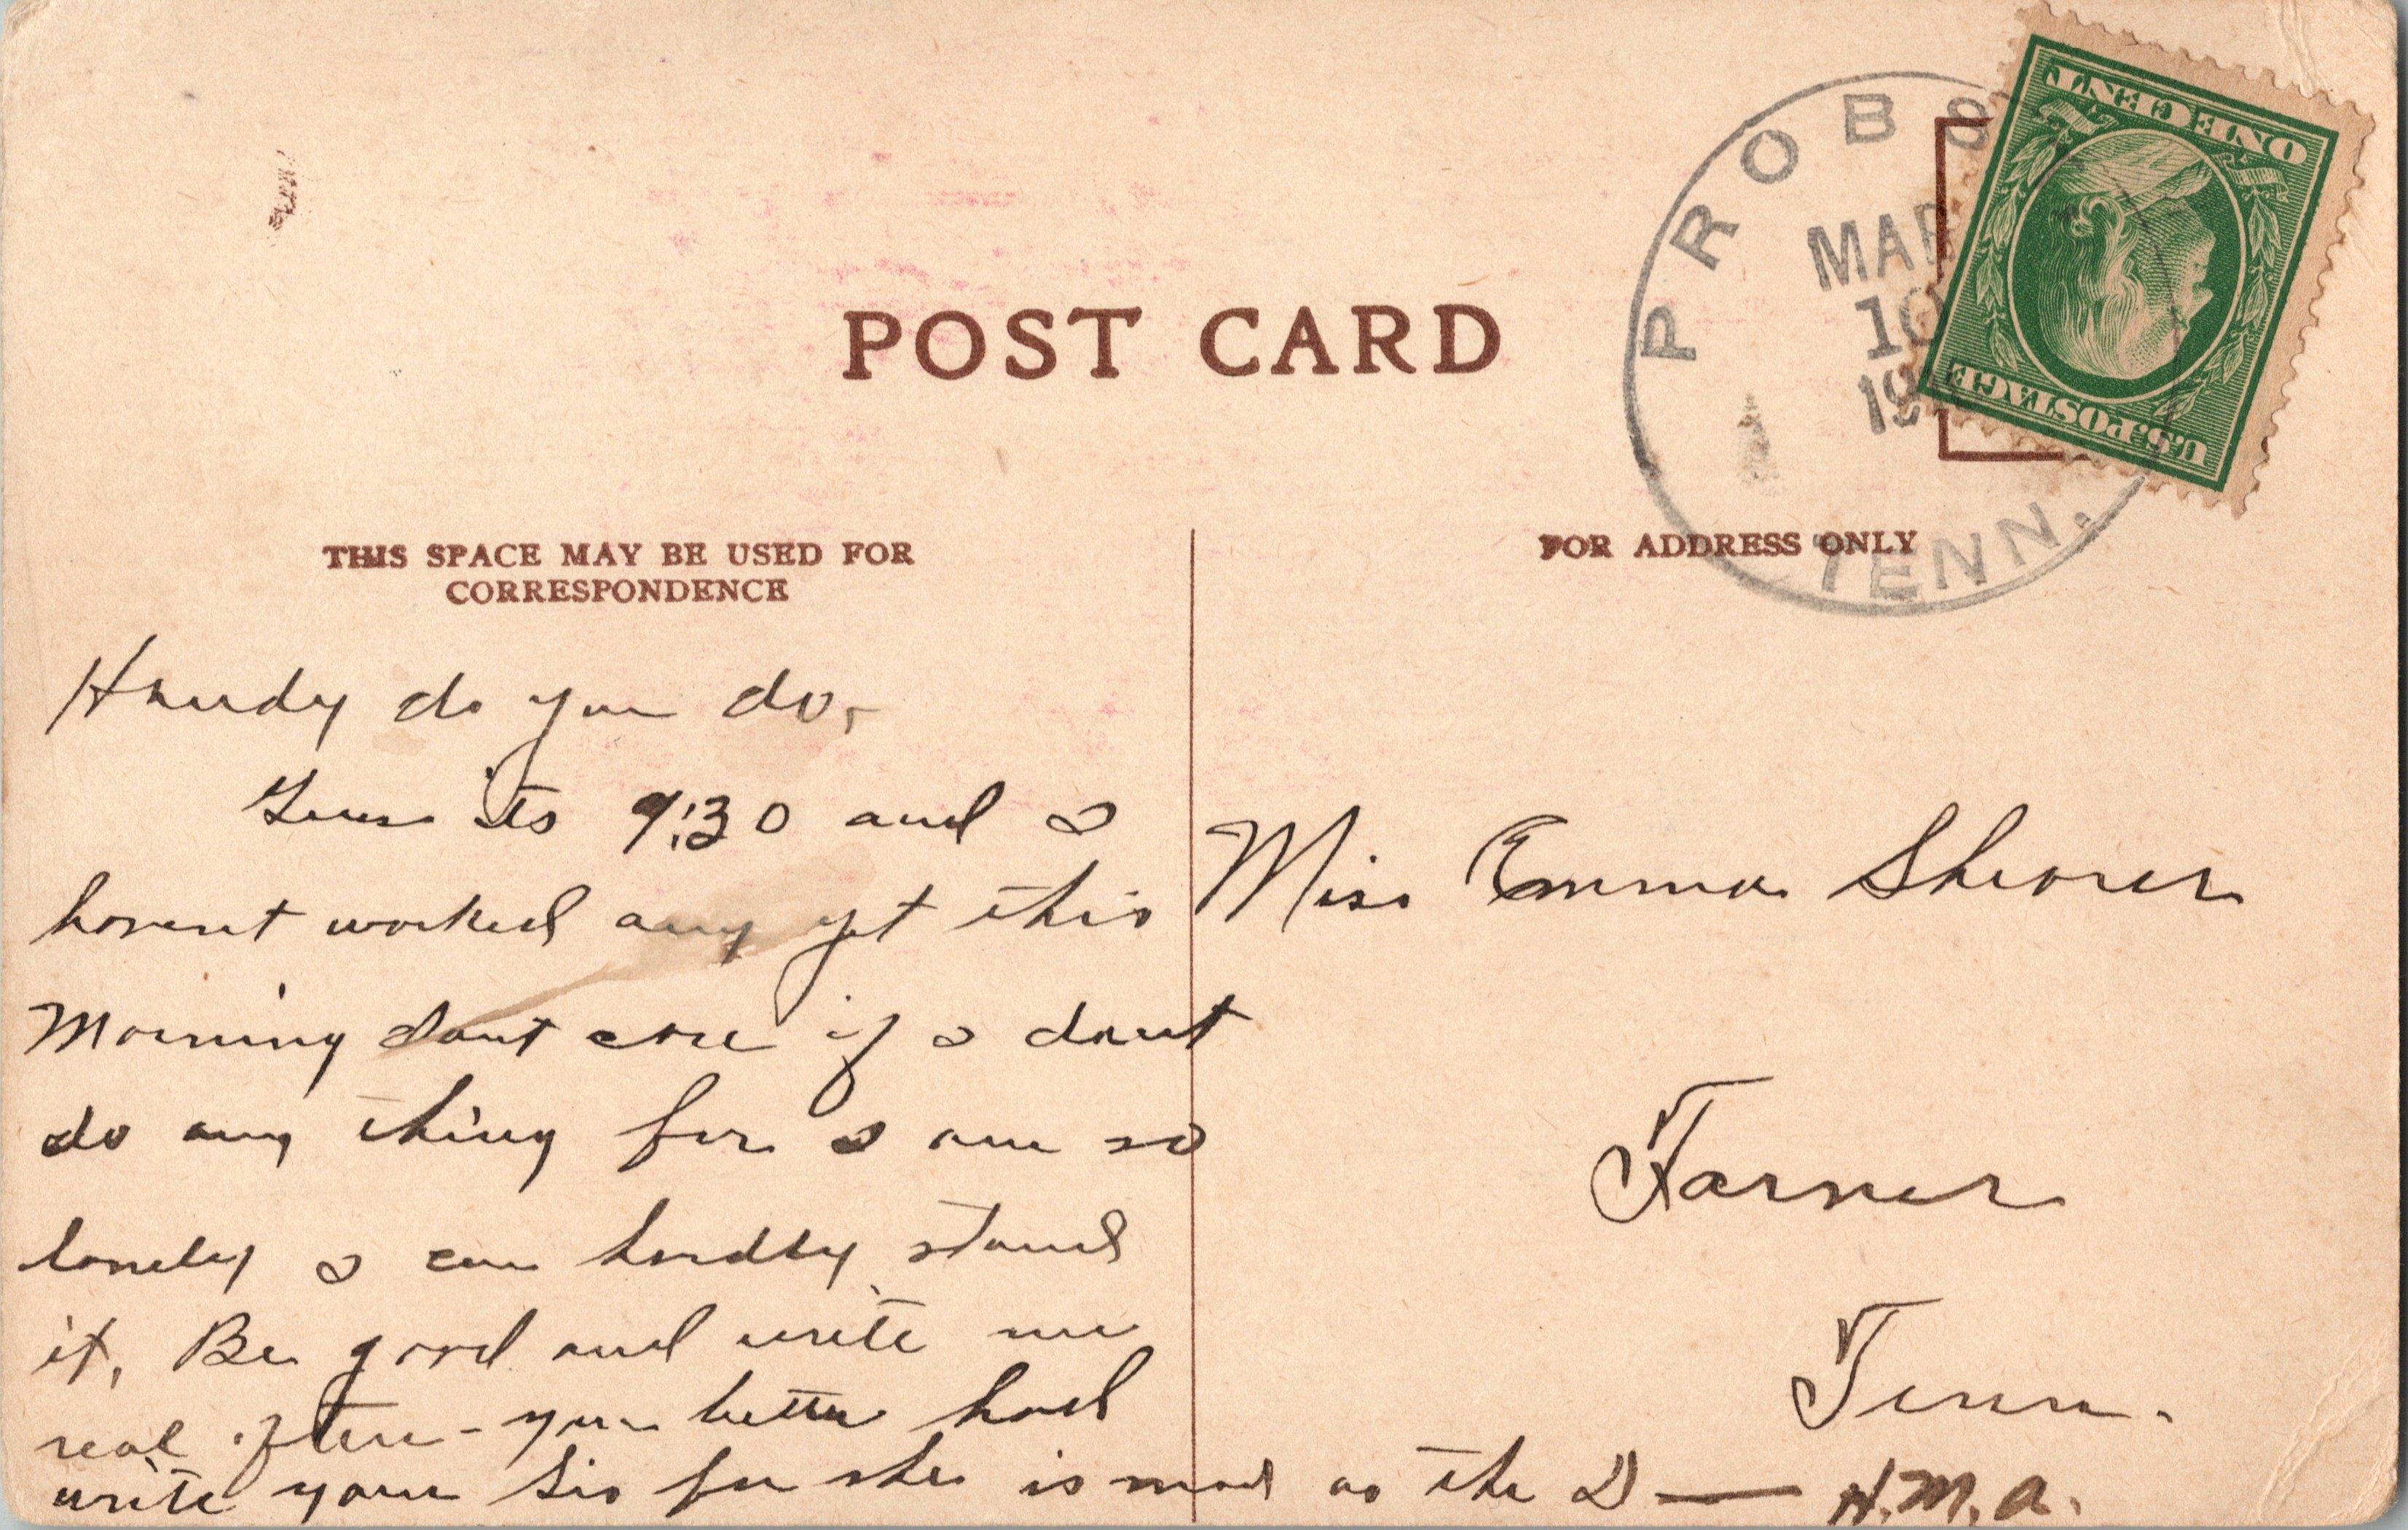 PROBS
MAR
10
19
TENN.
ONE CENT
U.S. POSTAGE
POST CARD
THIS SPACE MAY BE USED FOR
CORRESPONDENCE
FOR ADDRESS ONLY
Howdy do you do,
its 9:30 and I
havent worked any yet this
Morning dont care if I dont
do any thing for I am so
lonely I can hardly stand
it, Be good and write me
real often - you better had
write your Sis for she is mad as the D—— H.M.A.
Miss Emma Shearer
Farner
Tenn.